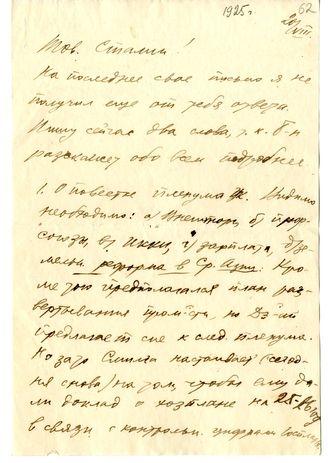 1925 г.
62
20/VIII.
Тов. Сталин!
На последнее свое письмо я не
получил еще от тебя ответа.
Пишу сейчас два слова, т.к. б-н
расскажет обо всем подробнее
1. О повестке пленума ЦК. Видимо
необходимо: а) Внешторг, б) проф-
союзы, в) ИККИ, г) зарплата, д) зе-
мельн. реформа в Ср. Азии. Кро-
ме того предполагался план раз-
вертывания пром-сти, но Дз-ий
предлагает сие к след. пленуму.
Но зато Смилга настаивает (сегод-
ня снова) на том, чтобы ему да-
ли доклад о хозплане на 25-26 год
в связи с контрольн. цифрами